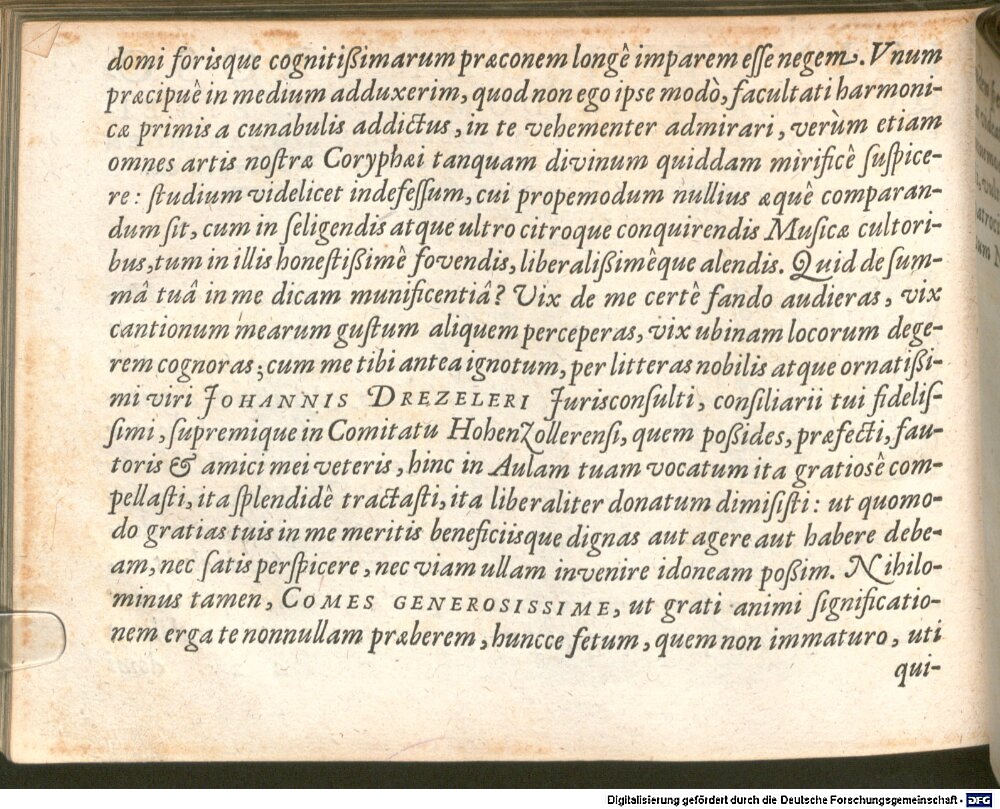 domi forisque cognitißimarum præconem longê imparem eſſe negem. Vnum
præcipuê in medium adduxerim, quod non ego ipse modò, facultati harmoni-
cæ primis a cunabulis addictus, in te vehementer admirari, verùm etiam
omnes artis noſtræ Coryphæi tanquam divinum quiddam mirificê ſuſpice-
re: ſtudium videlicet indefeſſum, cui propemodum nullius æquê comparan-
dum ſit, cum in ſeligendis atque ultro citroque conquirendis Muſicæ cultori-
bus, tum in illis honeſtißimê fovendis, liberalißimêque alendis. Quid de ſum-
mâ tuâ in me dicam munificentiâ? Vix de me certê fando audieras, vix
cantionum mearum guſtum aliquem perceperas, vix ubinam locorum dege-
rem cognoras; cum me tibi antea ignotum, per litteras nobilis atque ornatißi-
mi viri JOHANNIS DREZELERI Jurisconſulti, conſiliarii tui fideliſ-
ſimi, ſupremique in Comitatu HohenZollerenſi, quem poßides, præfecti, fau-
toris & amici mei veteris, hinc in Aulam tuam vocatum ita gratiosê com-
pellaſti, ita ſplendidê tractaſti, ita liberaliter donatum dimiſiſti: ut quomo-
do gratias tuis in me meritis beneficiisque dignas aut agere aut habere debe-
am, nec ſatis perſpicere, nec viam ullam invenire idoneam poßim. Nihilo-
minus tamen, COMES GENEROSISSIME, ut grati animi ſignificatio-
nem erga te nonnullam præberem, huncce fetum, quem non immaturo, uti
qui-
Digitalisierung gefördert durch die Deutsche Forschungsgemeinschaft - DFG